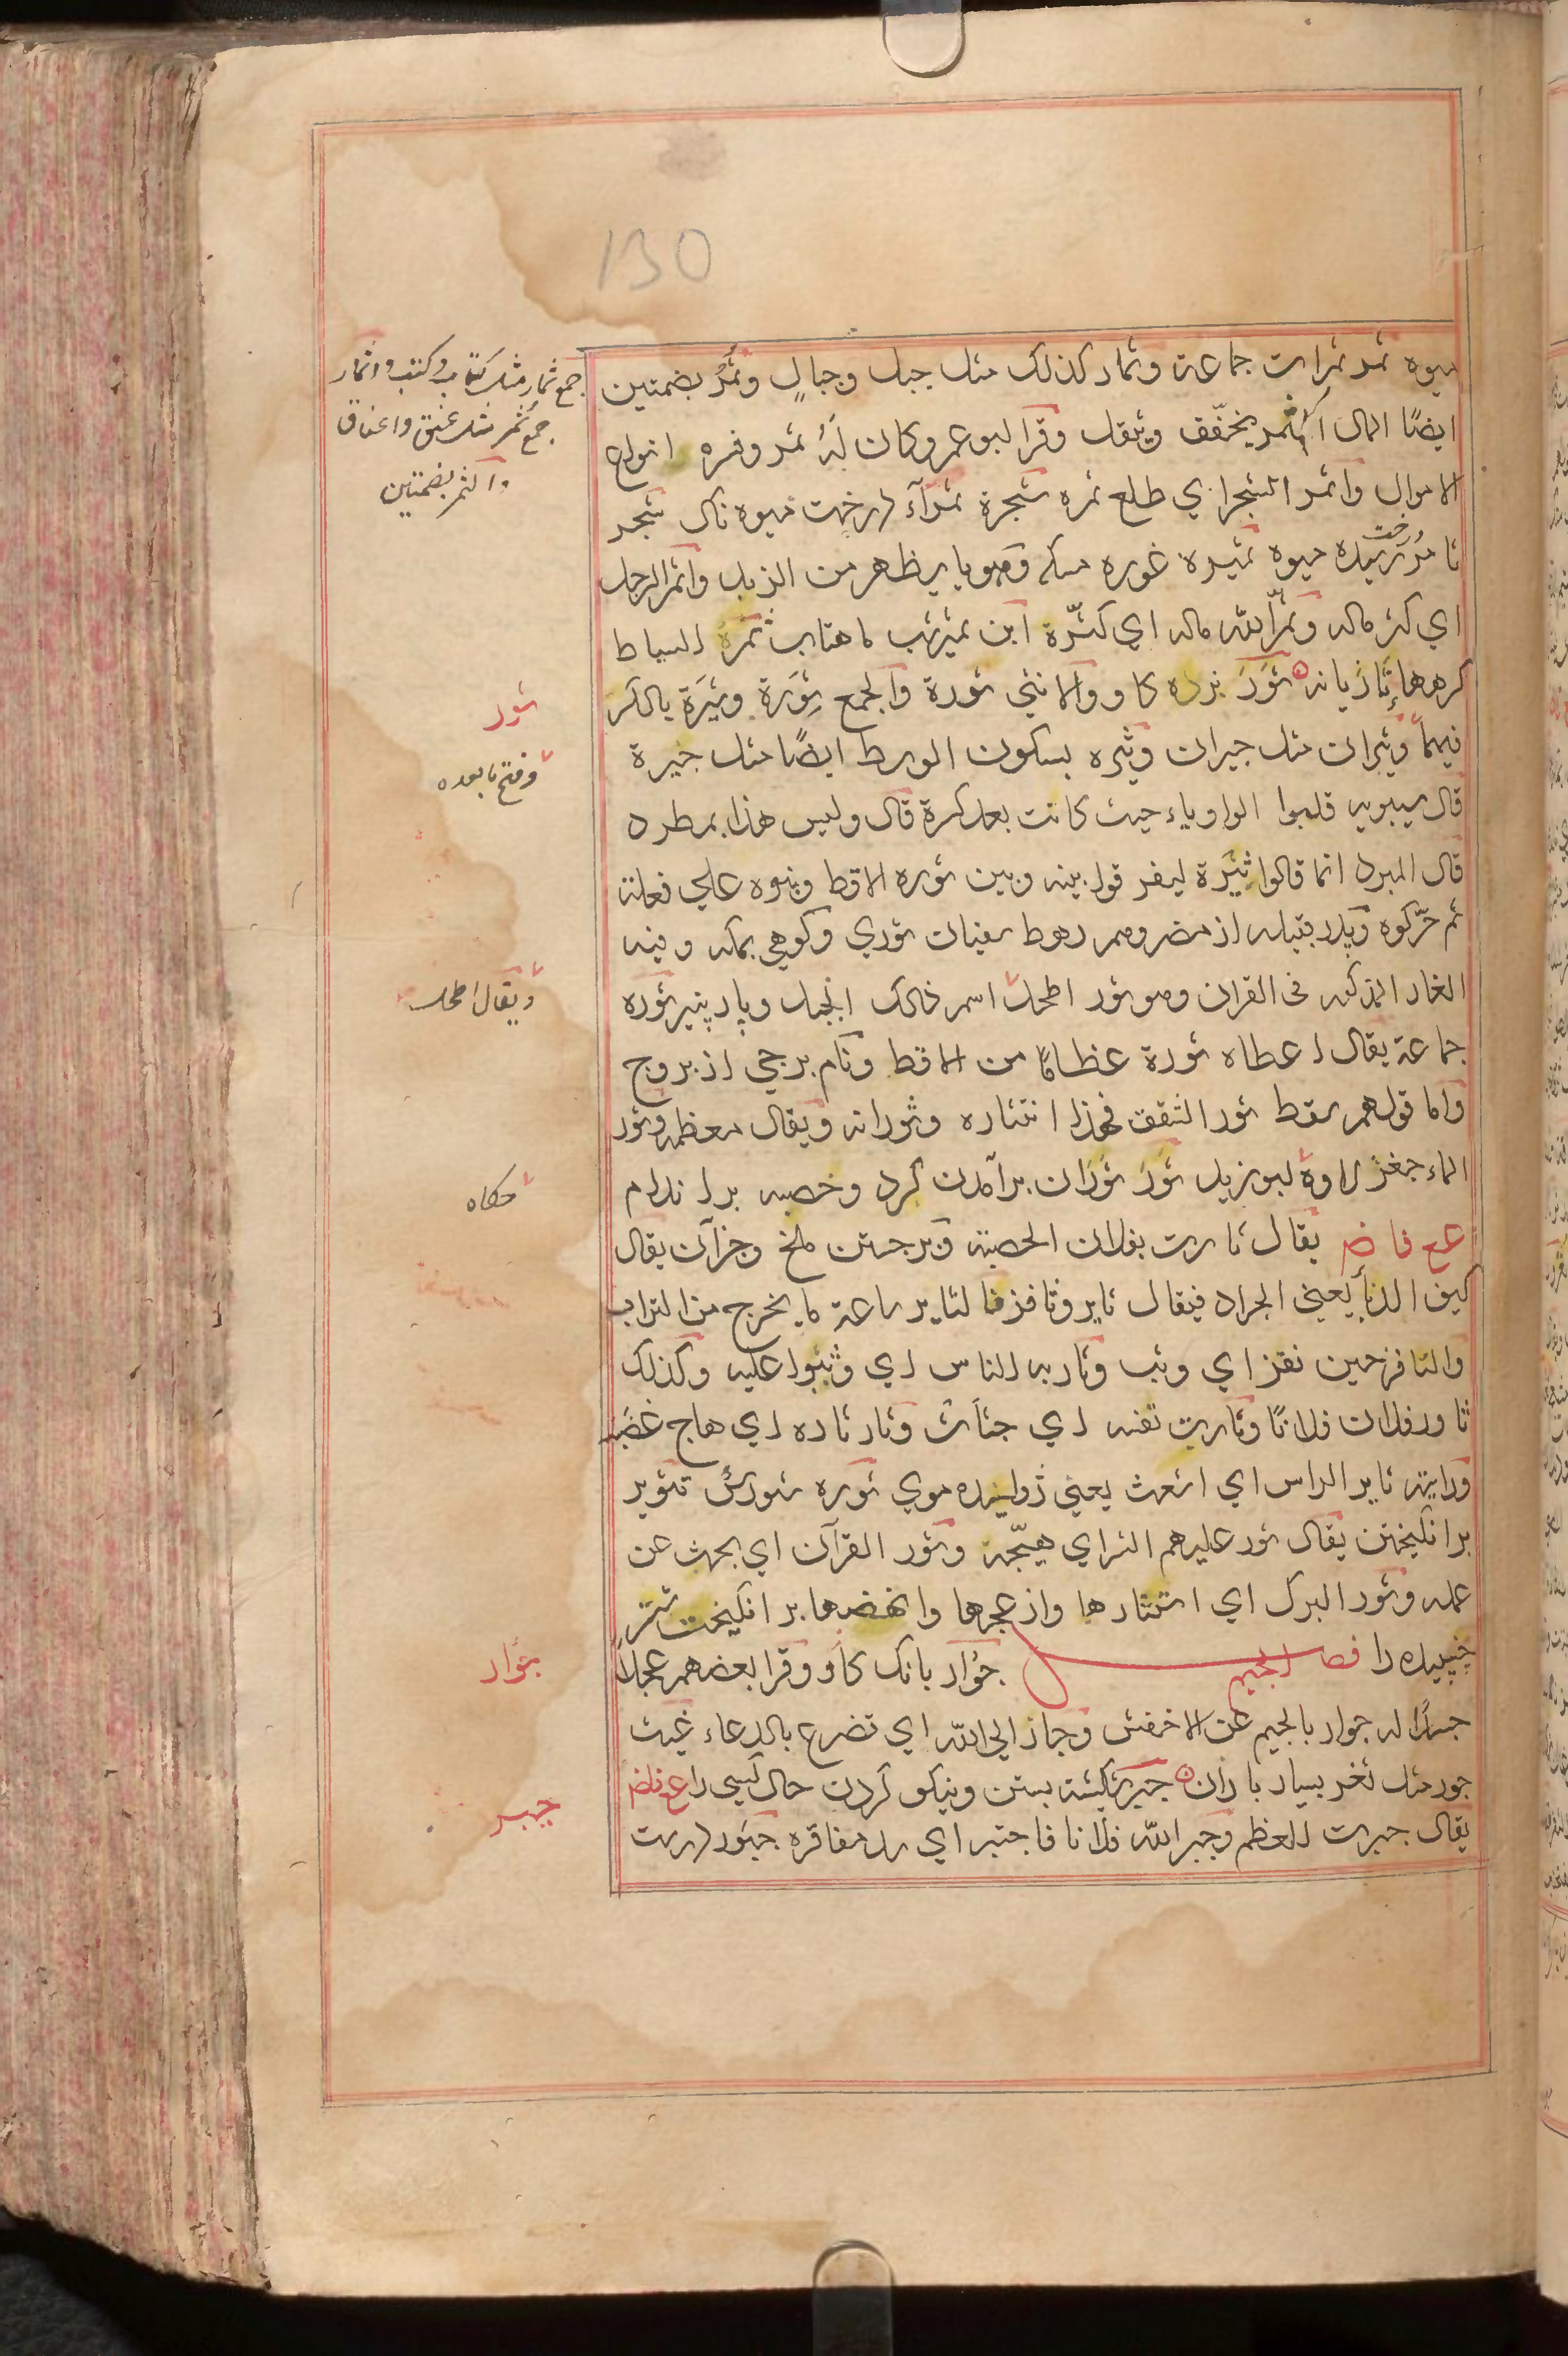 130
ميوه ثمر ثمرات جماعة وثمار كذلك مثل جبل وجبالٍ وثُمُر بضمتين
ايضًا المال المثمر يخفّف ويثقل وقرا ابو عمرو وكان لَهُ ثمر وفسره انواع
الاموال واثمر الشجر اي طلع ثمره شجرة ثمرآء درخت ميوه ناك شجر
ثامر رسيده ميوه ثميره غوره مسكه وهو ما يظهر من الزبد واثمر الرجل
اي كثر ماله وثمّر اللّه ماله اي كثّره ابن ثمير شب ماهتاب ثمرة السياط
كرهها تازيانه ثَوْر نرۀ كاو والانثي ثورة والجمع ثِوَرَة وثِيَرَة بالكسر
فيهما وثيران مثل جيران وثيره بسكون الوسط ايضًا مثل خيرة
قال سيبويه قلبوا الواو ياء حيث كانت بعد كسرة قال وليس هذا بمطرد
قال المبرد انما قالوا ثيَرة ليفرقوا بينه وبين ثوره الاقط وبنوه علي فعلة
ثم حرّكوه وپدر قبيله از مضر وهم رهط سفيان ثوري وكوهي بمكه وفيه
الغار المذكور فى القران وهو ثور اطحل اسم ذلك الجبل وپارۀ پنير ثوره
جماعة يقال اعطاه ثورة عظامًا من الاقط ونام برجي از بروج
واما قولهم سقط ثور الشفق فهذا انتشاره وثورانه ويقال معظمه وثور
الماء جغز لاوه ابو زيد ثَوْر ثَوَران برآمدن كرد وخصبه بر اندام
ع ع فا ض يقال ثارت بفلان الحصبة وبرجستن ملخ وجزآن يقال
كيف الدبا يعني الجراد فيقال ثاير ونافز فالثاير ساعة ما يخرج من التراب
والنافز حين نفز اي وثب وثار به الناس اي وثبوا عليه وكذلك
ثاور فلان فلانًا وثارت نفسه اي جشأت وثار ثاره اي هاج غضبه
ورايته ثاير الراس اي اشعث يعني ژوليده موي ثوره شورش تثوير
برانكيختن يقال ثور عليهم الشر اي هيّجه وثور القرآن اي بحث عن
علمه وثور البرك اي استثارها وازعجها وانهضها برانكيخت شتر
خسپيده را فصل الجيم جؤار بانك كاو وقرا بعضهم عجلًا
جسدًا له جوار بالجيم عن الاخفش وجار الي اللّه اي تضرع بالدعاء غيث
جور مثل نغر بسيار باران جبر شكسته بستن ونيكو كردن حال كسي را ع ع فا ض
يقال جبرت العظم وجبر اللّه فلانا فاجتبر اي سد مفاقره جبور درست
جمع ثمار مثل كتاب وكتب واثمار
جمع ثمر مثل عنق واعناق
والثمر بضمتين
ثور
وفتح ما بعده
ويقال اطحل
حكاه
جؤار
جبر